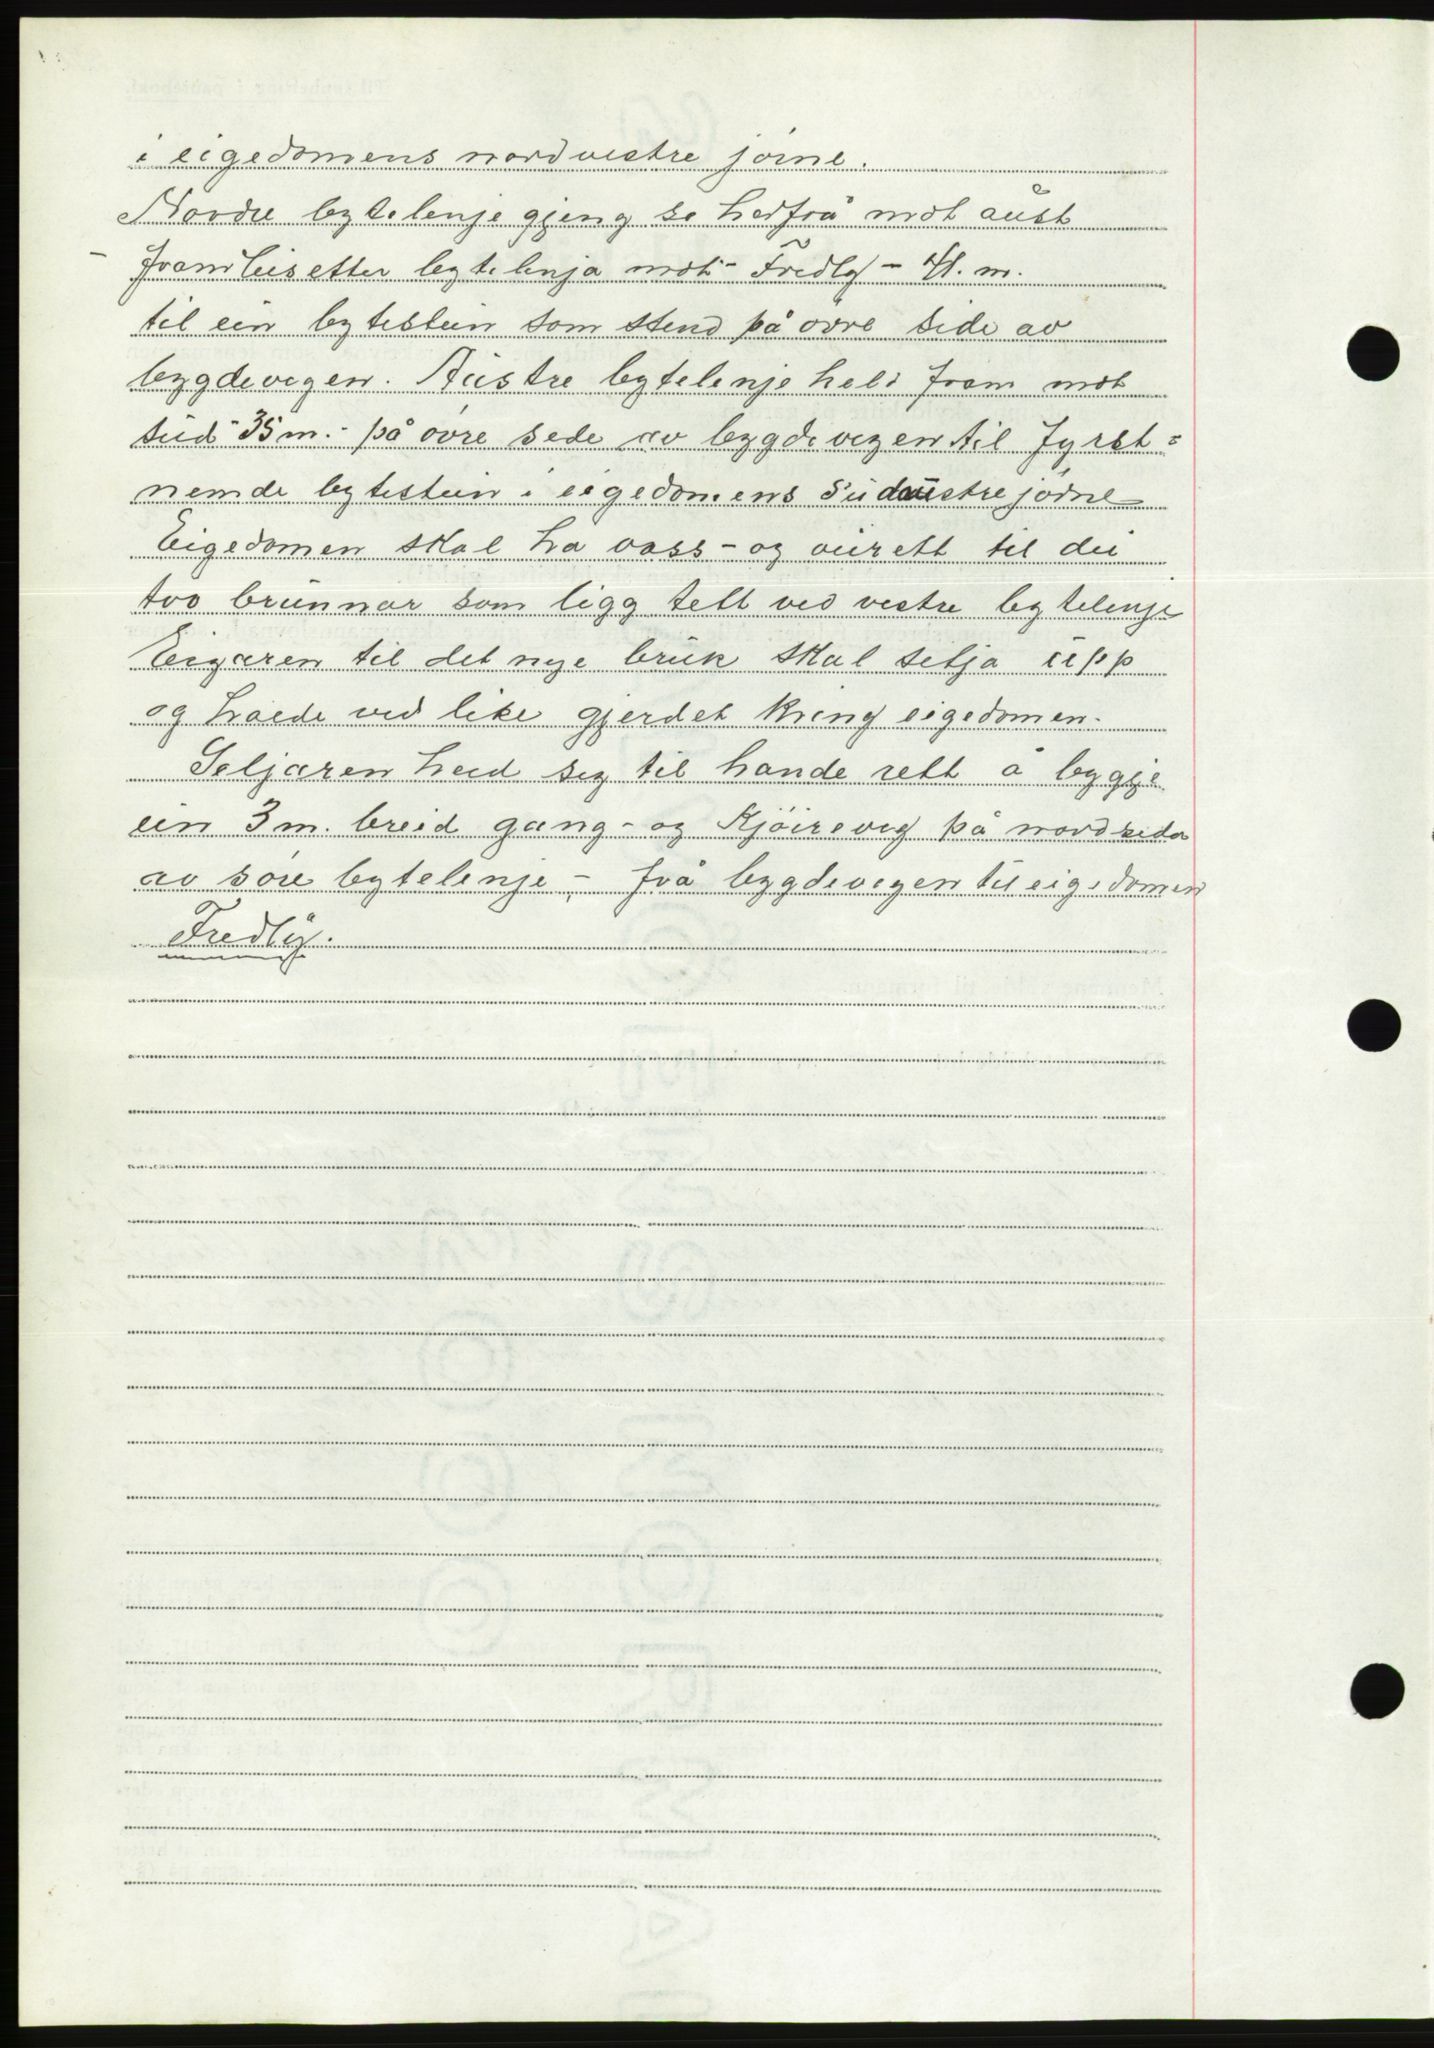 i eigedomens nordvestre jórne.
Nordre bytelenje gjeng so hedfrå mot aust
- framleis etter bytelenja mot - Fredly - 41. m.
til ein bytestein som stend på óvre side av
bygdevegen. Austre bytelenje held fram mot
sud - 35 m. - på óvre side av bygdevegen til fyrst-
nemde bytestein i eigedomens sudaustre jórne
Eigedomen skal ha vass - og veirett til dei
tvo brunnar som ligg tett ved vestre bytelenje
Eigaren til det nye bruk skal setja upp
og halde ved like gjerdet kring eigedomen.
Seljaren held seg til hande rett å byggje
ein 3 m. breid gang - og kjóireveg på nordsida
av sóre bytelenje - frå bygdevegen til eigedomen
Fredly.